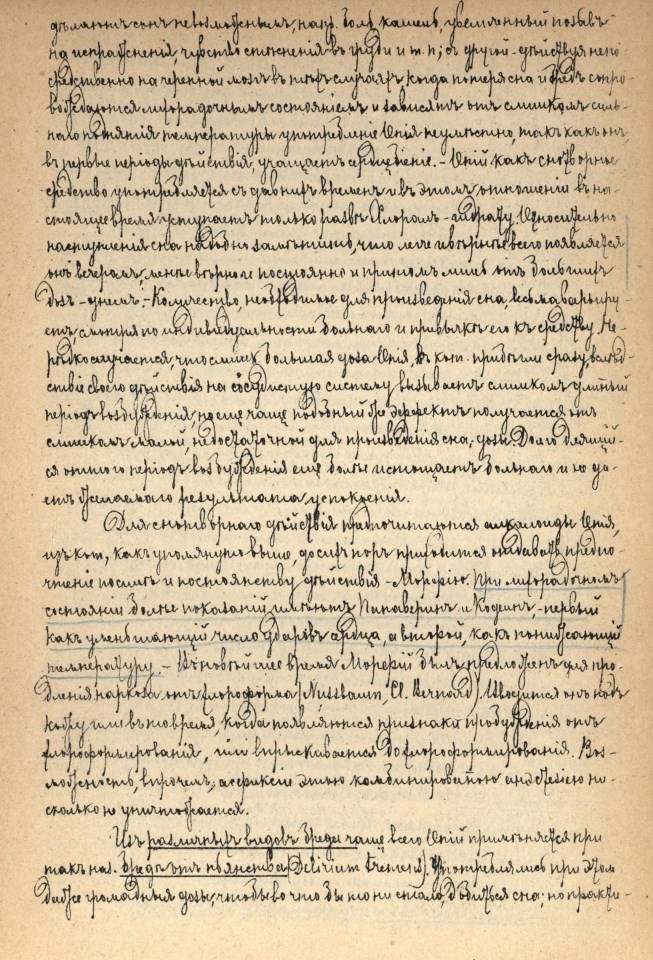 дѣлаютъ сонъ невозможнымъ, напр. боль, кашель, усиленный позывъ
на испражненія, чувство стѣсненія въ груди и т. п.; съ другой - дѣйствуя непо-
средственно на черепной мозгъ въ тѣхъ случаяхъ когда потеря сна и бредъ сопро-
вождаются лихорадочнымъ состояніемъ и зависятъ отъ слишкомъ силь-
наго поднятія температуры употребленіе Опія неумѣстно, такъ какъ онъ
въ первые періоды дѣйствія, учащаетъ сердцебіеніе. - Опій какъ снотворное
средство употребляется съ давнихъ временъ и въ этомъ отношеніи въ на-
стоящее время уступаетъ только развѣ Хлоралъ-гидрату. Относительно
наступленія сна надобно замѣтить, что легче и вѣрнѣе всего появляется
онъ вечеромъ, менѣе вѣрно и постоянно и притомъ лишь отъ большихъ
дозъ - днемъ. - Количество, необходимое для произведенія сна, весьма варьиру-
етъ, смотря по индивидуальности больнаго и привычкѣ его къ средству. Не-
рѣдко случается, что слишк. большая доза Опія, въ кот. прибѣгли сразу, вслѣд-
ствіе своего дѣйствія на сосудистую систему вызываетъ слишкомъ длинный
періодъ возбужденія, но еще чаще подобный же эффектъ получается отъ
слишкомъ малой, недостаточной для произведенія сна, дозы. Долго длящій-
ся от того періодъ возбужденія еще болѣе истощаетъ больнаго и не да-
етъ желаемаго результата успокоенія.
Для снотворнаго дѣйствія предпочитаются алкалоиды Опія,
изъ кот., какъ упомянуто выше, до сихъ поръ приходится отдавать предпо-
чтеніе по силѣ и постоянству дѣйствія - Морфію. При лихорадочномъ
состояніи болѣе показаній имѣютъ Папаверинъ и Кодеинъ, - первый
какъ уменьшающій число ударовъ сердца, а второй, какъ понижающій
температуру. - Въ новѣйшее время Морфій былъ предложенъ для про-
дленія наркоза отъ хлороформа (Nussbaum, Cl. Bernard). Вводится онъ подъ
кожу или въ то время, когда появляются признаки пробужденія отъ
хлороформированія, или впрыскивается до хлороформированія. Воз-
можность, впрочемъ, асфиксіи этою комбинированною анэстезіею ни-
сколько не уничтожается.
Изъ различныхъ видовъ бреда чаще всего Опій примѣняется при
такъ наз. бредѣ отъ пьянства (Delirium tremens). Употреблялись при этомъ
даже громадныя дозы, чтобы во что бы то ни стало, добиться сна; но практи-